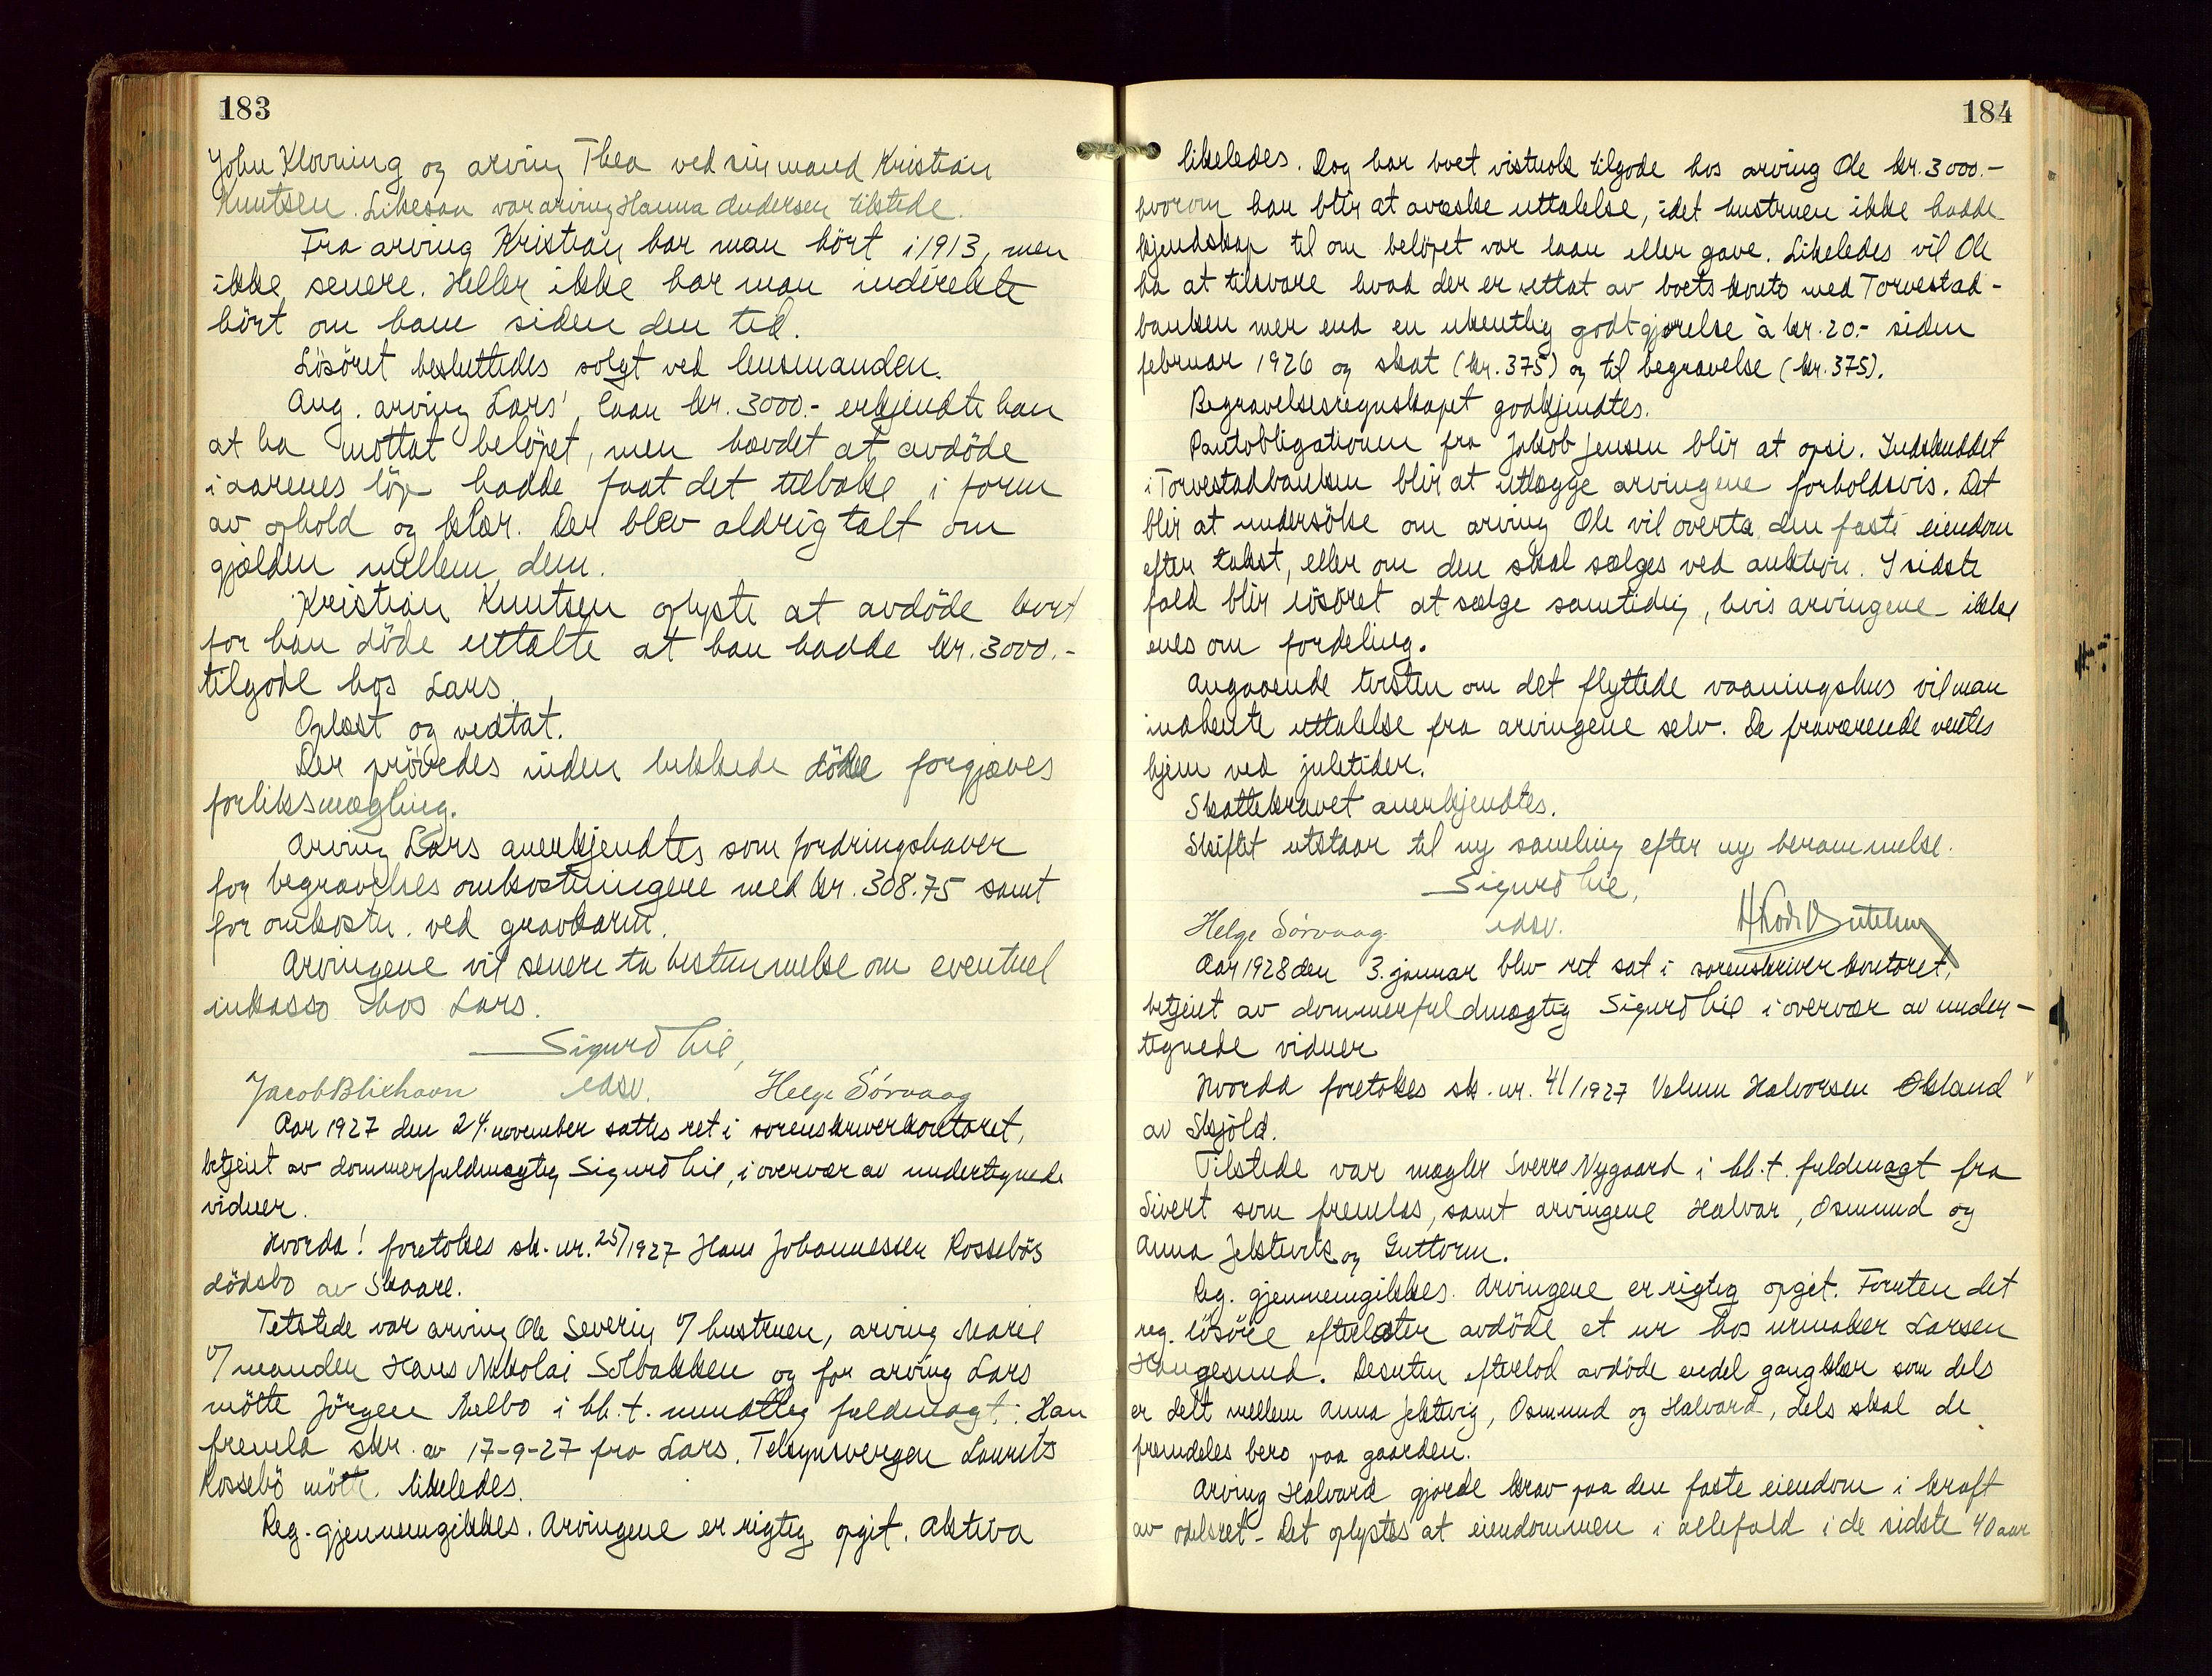 183
John Klovning og arving Thea ved sin mand Kristian
Knutsen. Likesaa var arving Hanna Andersen tilstede.
Fra arving Kristian har man hört i 1913, men
ikke senere. Heller ikke har man indirekte
hört om ham siden den tid.
Lösöret besluttedes solgt ved lensmanden.
Ang. arving Lars' laan kr. 3000.- erkjendte han
at ha mottat belöpet, men hævdet at avdöde
i aarenes löp hadde faat det tilbake i form
av ophold og klær. Der blev aldrig talt om
gjælden mellem dem.
Kristian Knutsen oplyste at avdöde kort
för han döde uttalte at han hadde kr. 3000.-
tilgode hos Lars.
Oplæst og vedtat.
Der prövedes inden lukkede döre forgjæves
forliksmægling.
Arving Lars anerkjendtes som fordringshaver
for begravelses omkostningene med kr. 308.75 samt
for omkostn. ved gravkarm.
Arvingene vil senere ta bestemmelse om eventuel
inkasso hos Lars.
Sigurd Lie,
Jacob Blikhavn edsv. Helge Sörvaag
Aar 1927 den 24. november sattes ret i sorenskriverkontoret,
betjent av dommerfuldmægtig Sigurd Lie, i overvær av undertegnede
vidner.
Hvorda! foretokes sk. nr. 25/1927 Hans Johannessen Rossebös
dödsbo av Skaare.
Tilstede var arving Ole Severin v/ hustruen, arving Marie
v/ manden Hans Nikolai Solbakken og for arving Lars
mötte Jörgen Melbo i hh.t. mundtlig fuldmagt. Han
fremla skr. av 17-9-27 fra Lars. Tilsynsvergen Laurits
Rossebö mötte likeledes.
Reg. gjennemgikkes. Arvingene er rigtig opgit. Aktiva
184
likeledes. Dog har boet vistnok tilgode hos arving Ole kr. 3000.-
hvorom han blir at avæske uttalelse, idet hustruen ikke hadde
kjendskap til om belöpet var laan eller gave. Likeledes vil Ole
ha at tilsvare hvad der er uttat av boets konto med Torvestad-
banken mer end en ukentlig godtgjörelse à kr. 20.- siden
februar 1926 og skat (kr. 375) og til begravelse (kr. 375).
Begravelsesregnskapet godkjendtes.
Pantobligationen fra Jakob Jensen blir at opsi. Indskuddet
i Torvestadbanken blir at utlægge arvingene forholdsvis. Det
blir at undersöke om arving Ole vil overta den faste eiendom
efter takst, eller om den skal sælges ved auktion. I sidste
fald blir lösöret at sælge samtidig, hvis arvingene ikke
enes om fordeling.
Angaaende tvisten om det flyttede vaaningshus vil man
indhente uttalelse fra arvingene selv. De fraværende ventes
hjem ved juletider.
Skattekravet anerkjendtes.
Skiftet utstaar til ny samling efter ny berammelse.
Sigurd Lie,
Helge Sörvaag edsv.
Aar 1928 den 3. januar blev ret sat i sorenskriverkontoret,
betjent av dommerfuldmægtig Sigurd Lie i overvær av under-
tegnede vidner
Hvorda foretokes sk. nr. 41/1927 Halvorsen Ökland
av Skjöld.
Tilstede var mægler Sverre Nygaard i hh.t. fuldmagt fra
Sivert som fremlas, samt arvingene Halvar, Osmund og
Anna Jelstvik og Guttorm.
Reg. gjennemgikkes. Arvingene er rigtig opgit. Foruten det
reg. lösöre efterlater avdöde et ur hos urmaker Larsen
Haugesund. Desuten efterlod avdöde endel gangklær som dels
er delt mellem Anna Jelstvig, Osmund og Halvard, dels skal de
fremdeles bero paa gaarden.
Arving Halvard gjorde krav paa den faste eiendom i kraft
av odelsret. Det oplystes at eiendommen i allefald i de sidste 40 aar